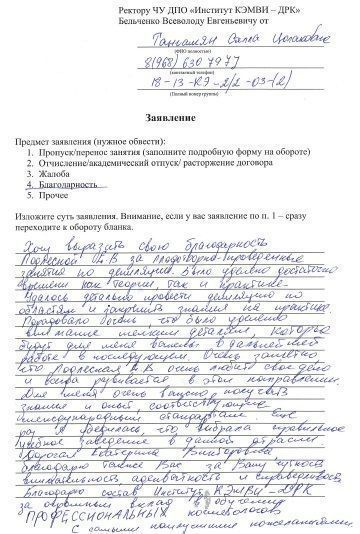 Ректору ЧУ ДПО «Институт КЭМВИ – ДРК»
Бельченко Всеволоду Евгеньевичу от
Тангамян Салла Цолаковна
(ФИО полностью)
8(968) 630 7977
(контактный телефон)
18-13-КРЭ-2/2-03-(2)
(Полный номер группы)
Заявление
Предмет заявления (нужное обвести):
1. Пропуск/перенос занятия (заполните подробную форму на обороте)
2. Отчисление/академический отпуск/ расторжение договора
3. Жалоба
4. Благодарность
5. Прочее
Изложите суть заявления. Внимание, если у вас заявление по п. 1 – сразу
переходите к обороту бланка.
Хочу выразить свою благодарность
Подлесной А.В за плодотворно проведенные
занятия по депиляции. Было уделено достаточно
времени как теории, так и практике.
Удалось детально провести депиляцию по
областям и закрепить знания на практике.
Порадовало больше что было уделено
внимание мелким деталям, которые
будут для меня важны в дальнейшей
работе в последующем. Очень заметно
что Подлесная А.В очень любит свое дело
и всегда развивается в этом направлении.
Для меня очень важно получать
знания и опыт, соответствующие
международным стандартам. Еще
раз я убедилась что выбрала правильное
учебное заведение в данной отрасли
Дорогая Екатерина Викторовна
благодарю также Вас за Вашу чуткость
внимательность, адекватность и справедливость
Благодарю состав Институт КЭМВИ-ДРК
за огромный вклад в обучении
ПРОФЕССИОНАЛЬНЫХ косметологов
С самыми наилучшими пожеланиями.